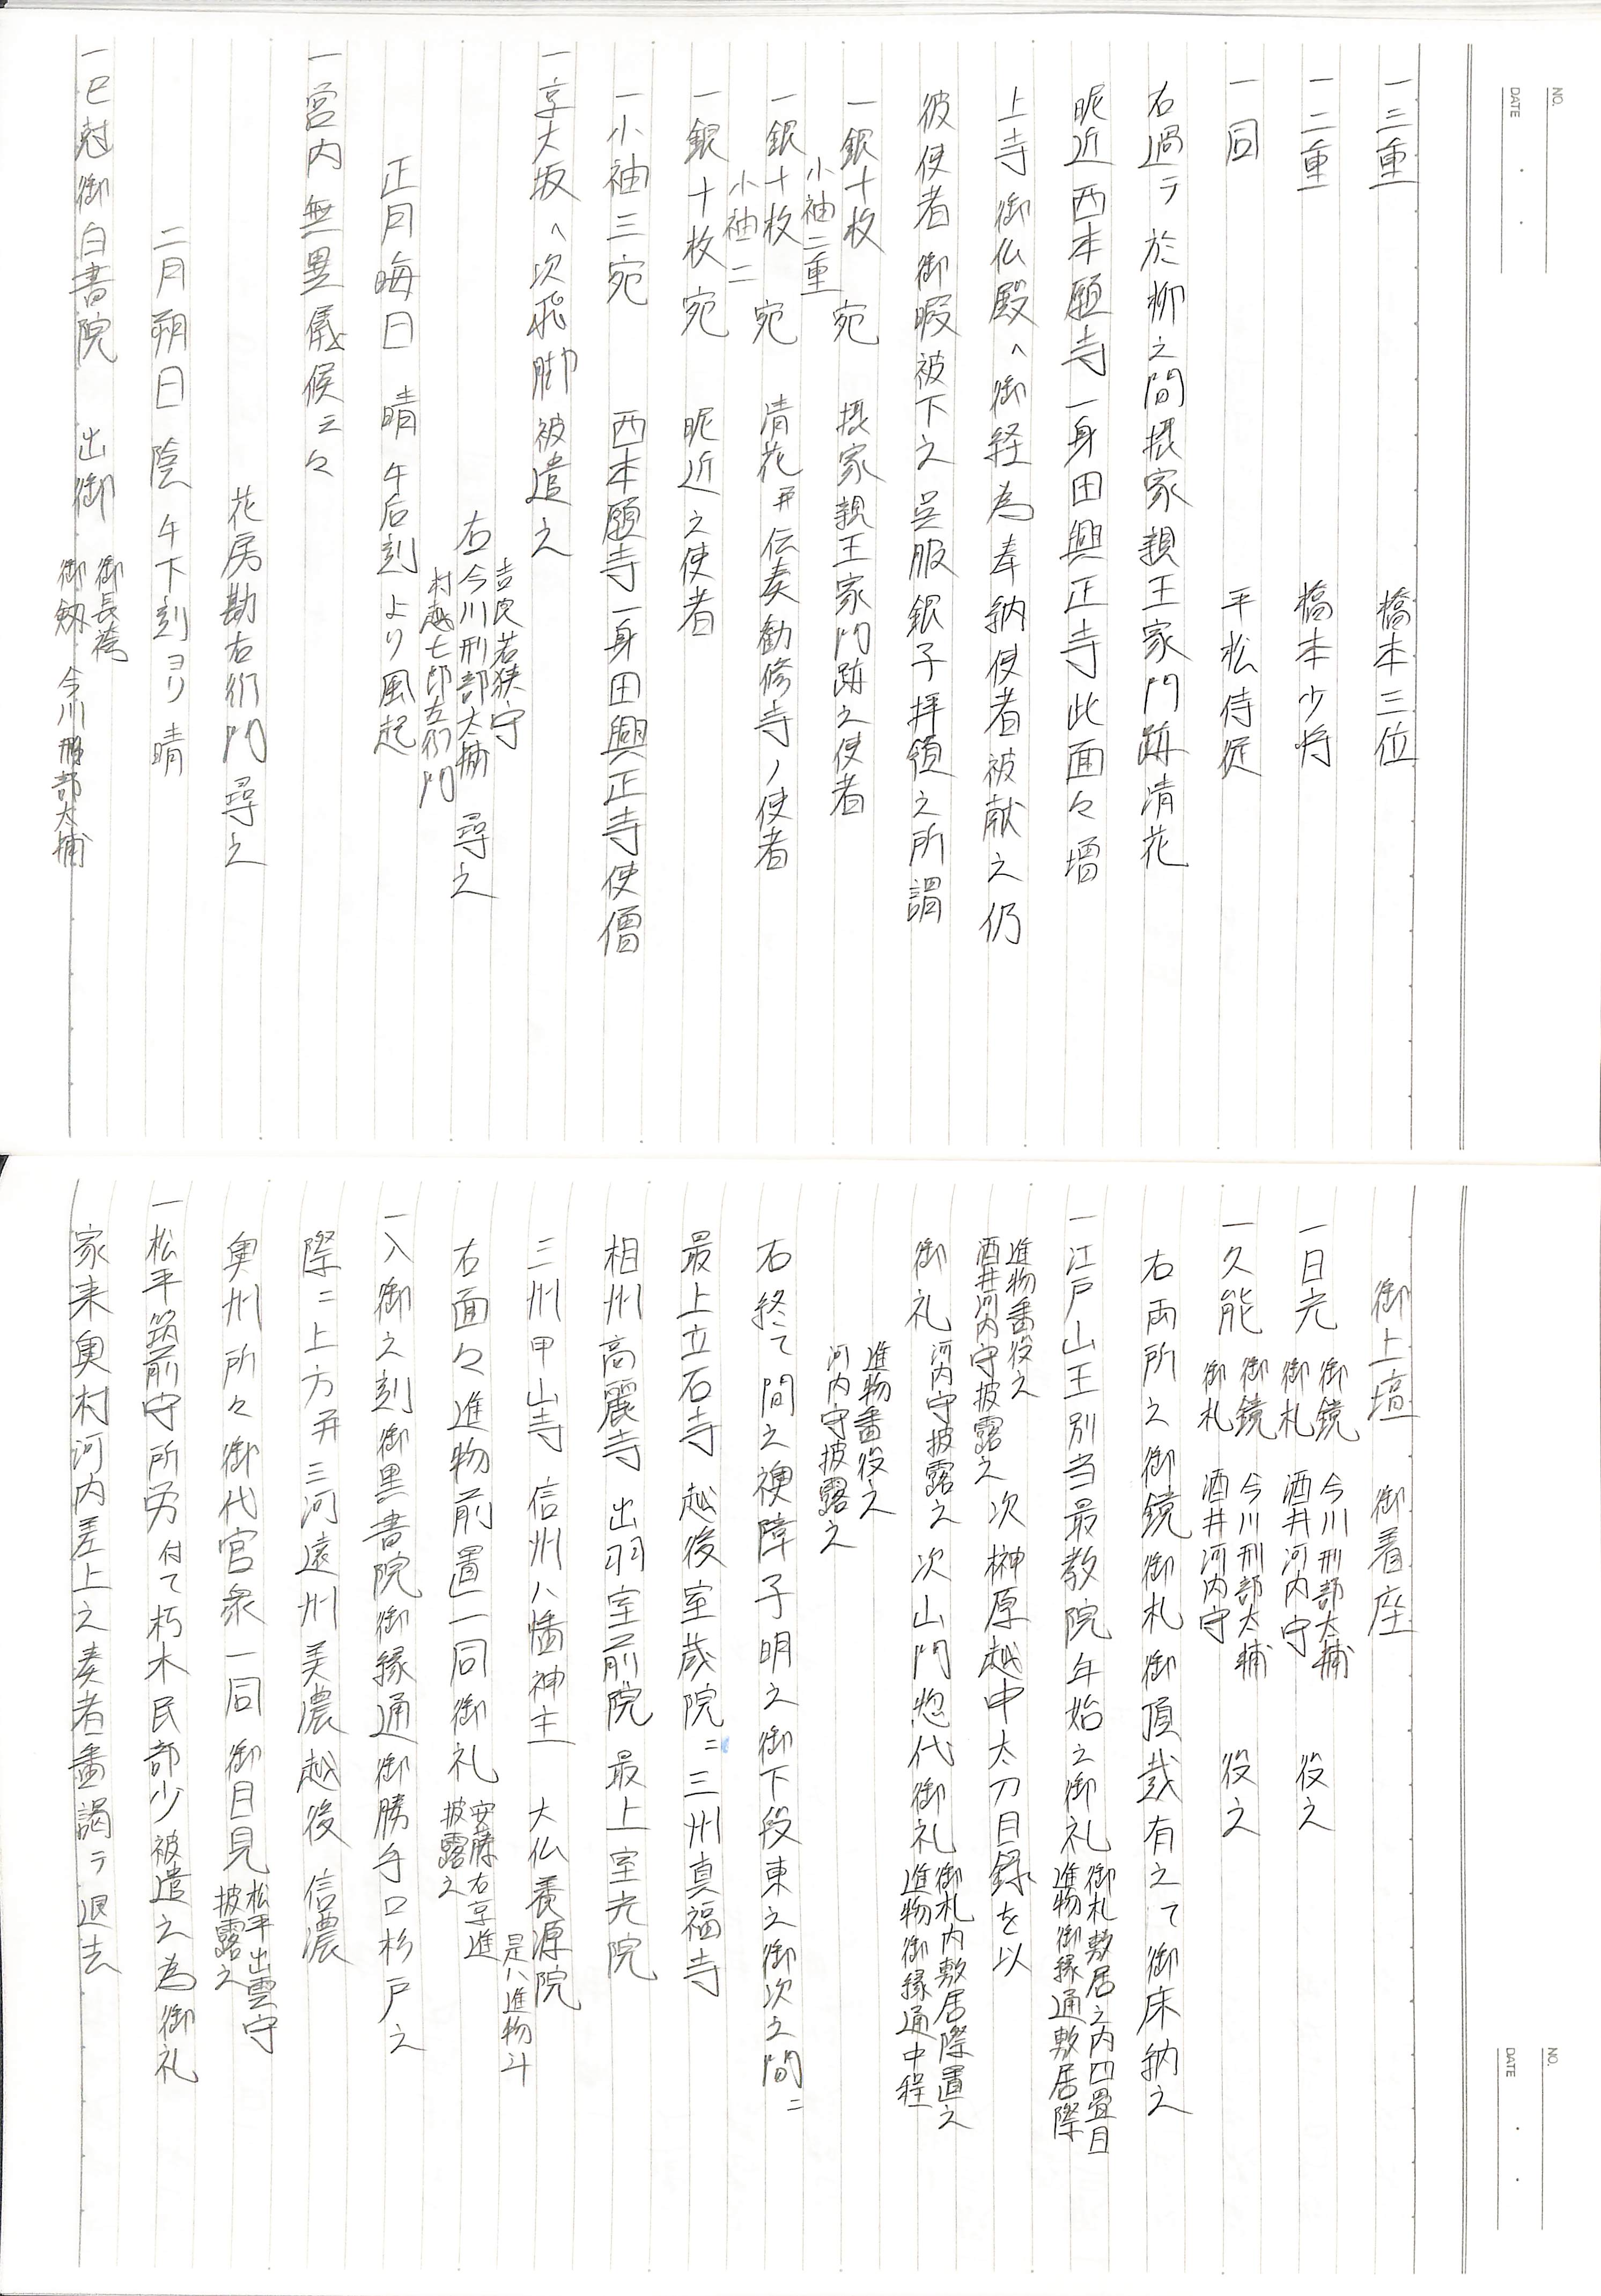 NO.
DATE
一三重 橋本三位
一二重 橋本少将
一同 平松侍従
右過テ於柳之間摂家親王家門跡清花
昵近西本願寺一身田興正寺此面々増
上寺御仏殿へ御経為奉納使者被献之仍
彼使者御暇被下之呉服銀子拝領之所謂
一銀十枚 小袖二重 宛 摂家親王家門跡之使者
一銀十枚 小袖二 宛 清花并伝奏勧修寺ノ使者
一銀十枚宛 昵近之使者
一小袖三宛 西本願寺一身田興正寺使僧
一京大坂へ次飛脚被遣之
吉良若狭守
右今川刑部大輔 尋之
村越七郎左衛門
正月晦日 晴 午后刻より風起
一宮内無異儀候云々
花房勘右衛門尋之
二月朔日 陰 午下刻ヨリ晴
一巳刻御白書院 出御 御長袴
御剱 今川刑部大輔
NO.
DATE
御上壇 御着座
一日光 御鏡 今川刑部大輔
御札 酒井河内守 役之
一久能 御鏡 今川刑部大輔
御札 酒井河内守 役之
右両所之御鏡御札御頂戴有之て御床納之
一江戸山王別当最教院年始之御礼 御札敷居之内四畳目
進物御縁通敷居際
進物番役之
酒井河内守披露之 次榊原越中太刀目録を以
御礼 河内守披露之 次山門惣代御礼 御札内敷居際置之
進物御縁通中程
進物番役之
河内守披露之
右終て間之襖障子明之御下段東之御次之間ニ
最上立石寺 越後室蔵院ニ三州真福寺
相州高麗寺 出羽室前院 最上室光院
三州甲山寺 信州八幡神主 大仏養源院
是ハ進物斗
右面々進物前置一同御礼 安藤右京進
披露之
一入御之刻御黒書院御縁通御勝手口杉戸之
際ニ上方并三河遠州美濃越後 信濃
奥州所々御代官衆一同御目見 松平出雲守
披露之
一松平筑前守所労付て朽木民部少被遣之為御礼
家来奥村河内差上之奏者番謁テ退去